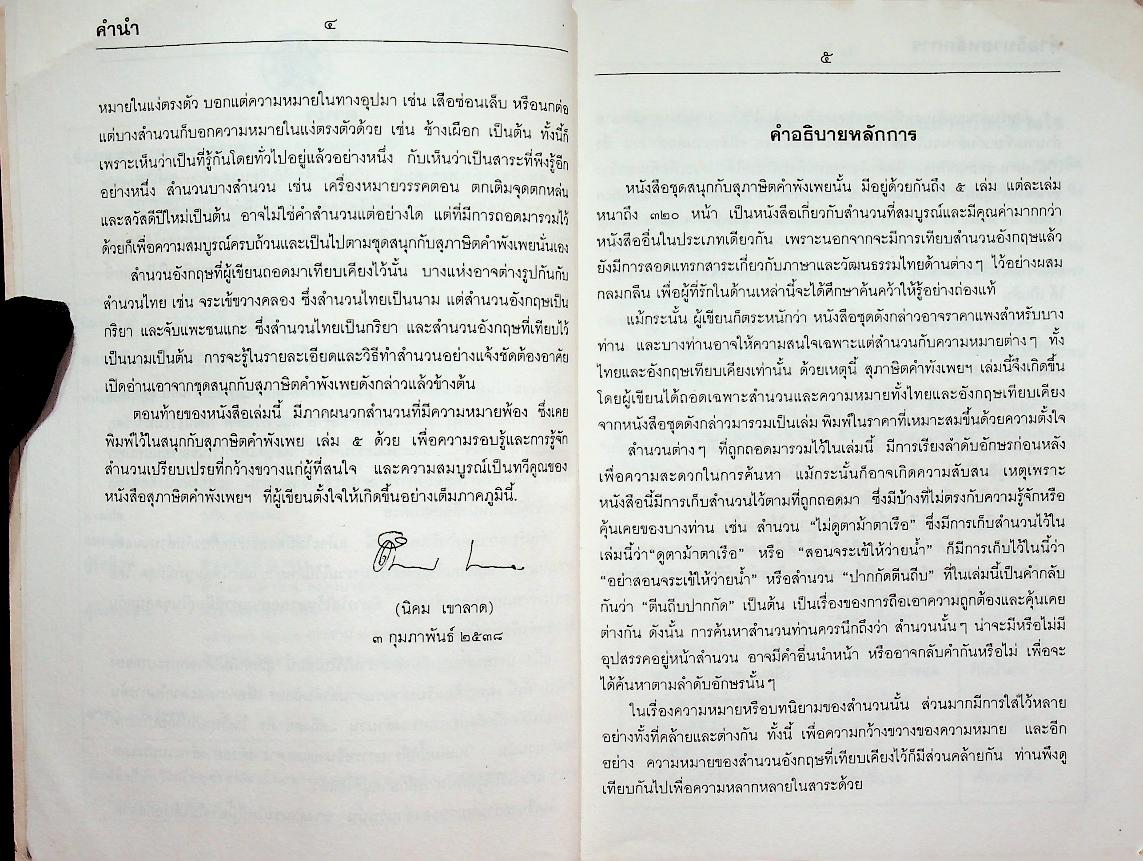 คำนำ
๔
หมายในแง่ตรงตัว บอกแต่ความหมายในทางอุปมา เช่น เสือซ่อนเล็บ หรือนกต่อ
แต่บางสำนวนก็บอกความหมายในแง่ตรงตัวด้วย เช่น ช้างเผือก เป็นต้น ทั้งนี้ก็
เพราะเห็นว่าเป็นที่รู้กันโดยทั่วไปอยู่แล้วอย่างหนึ่ง กับเห็นว่าเป็นสาระที่พึงรู้อีก
อย่างหนึ่ง สำนวนบางสำนวน เช่น เครื่องหมายวรรคตอน ตกเติมจุดตกหล่น
และสวัสดีปีใหม่เป็นต้น อาจไม่ใช่คำสำนวนแต่อย่างใด แต่ที่มีการถอดมารวมไว้
ด้วยก็เพื่อความสมบูรณ์ครบถ้วนและเป็นไปตามชุดสนุกกับสุภาษิตคำพังเพยนั่นเอง
สำนวนอังกฤษที่ผู้เขียนถอดมาเทียบเคียงไว้นั้น บางแห่งอาจต่างรูปกันกับ
สำนวนไทย เช่น จระเข้ขวางคลอง ซึ่งสำนวนไทยเป็นนาม แต่สำนวนอังกฤษเป็น
กริยา และจับแพะชนแกะ ซึ่งสำนวนไทยเป็นกริยา และสำนวนอังกฤษที่เทียบไว้
เป็นนามเป็นต้น การจะรู้ในรายละเอียดและวิธีทำสำนวนอย่างแจ้งชัดต้องอาศัย
เปิดอ่านเอาจากชุดสนุกกับสุภาษิตคำพังเพยดังกล่าวแล้วข้างต้น
ตอนท้ายของหนังสือเล่มนี้ มีภาคผนวกสำนวนที่มีความหมายพ้อง ซึ่งเคย
พิมพ์ไว้ในสนุกกับสุภาษิตคำพังเพย เล่ม ๕ ด้วย เพื่อความรอบรู้และการรู้จัก
สำนวนเปรียบเปรยที่กว้างขวางแก่ผู้ที่สนใจ และความสมบูรณ์เป็นทวีคูณของ
หนังสือสุภาษิตคำพังเพยฯ ที่ผู้เขียนตั้งใจให้เกิดขึ้นอย่างเต็มภาคภูมินี้.
(นิคม เขาลาด)
๓ กุมภาพันธ์ ๒๕๓๘
๕
คำอธิบายหลักการ
หนังสือชุดสนุกกับสุภาษิตคำพังเพยนั้น มีอยู่ด้วยกันถึง ๕ เล่ม แต่ละเล่ม
หนาถึง ๓๒๐ หน้า เป็นหนังสือเกี่ยวกับสำนวนที่สมบูรณ์และมีคุณค่ามากกว่า
หนังสืออื่นในประเภทเดียวกัน เพราะนอกจากจะมีการเทียบสำนวนอังกฤษแล้ว
ยังมีการสอดแทรกสาระเกี่ยวกับภาษาและวัฒนธรรมไทยด้านต่างๆ ไว้อย่างผสม
กลมกลืน เพื่อผู้ที่รักในด้านเหล่านี้จะได้ศึกษาค้นคว้าให้รู้อย่างถ่องแท้
แม้กระนั้น ผู้เขียนก็ตระหนักว่า หนังสือชุดดังกล่าวอาจราคาแพงสำหรับบาง
ท่าน และบางท่านอาจให้ความสนใจเฉพาะแต่สำนวนกับความหมายต่างๆ ทั้ง
ไทยและอังกฤษเทียบเคียงเท่านั้น ด้วยเหตุนี้ สุภาษิตคำพังเพยฯ เล่มนี้จึงเกิดขึ้น
โดยผู้เขียนได้ถอดเฉพาะสำนวนและความหมายทั้งไทยและอังกฤษเทียบเคียง
จากหนังสือชุดดังกล่าวมารวมเป็นเล่ม พิมพ์ในราคาที่เหมาะสมขึ้นด้วยความตั้งใจ
สำนวนต่างๆ ที่ถูกถอดมารวมไว้ในเล่มนี้ มีการเรียงลำดับอักษรก่อนหลัง
เพื่อความสะดวกในการค้นหา แม้กระนั้นก็อาจเกิดความสับสน เหตุเพราะ
หนังสือนี้มีการเก็บสำนวนไว้ตามที่ถูกถอดมา ซึ่งมีบ้างที่ไม่ตรงกับความรู้จักหรือ
คุ้นเคยของบางท่าน เช่น สำนวน “ไม่ดูตาม้าตาเรือ” ซึ่งมีการเก็บสำนวนไว้ใน
เล่มนี้ว่า“ดูตาม้าตาเรือ” หรือ “สอนจระเข้ให้ว่ายน้ำ” ก็มีการเก็บไว้ในนี้ว่า
“อย่าสอนจระเข้ให้ว่ายน้ำ” หรือสำนวน “ปากกัดตีนถีบ” ที่ในเล่มนี้เป็นคำกลับ
กันว่า “ตีนถีบปากกัด” เป็นต้น เป็นเรื่องของการถือเอาความถูกต้องและคุ้นเคย
ต่างกัน ดังนั้น การค้นหาสำนวนท่านควรนึกถึงว่า สำนวนนั้นๆ น่าจะมีหรือไม่มี
อุปสรรคอยู่หน้าสำนวน อาจมีคำอื่นนำหน้า หรืออาจกลับคำกันหรือไม่ เพื่อจะ
ได้ค้นหาตามลำดับอักษรนั้นๆ
ในเรื่องความหมายหรือบทนิยามของสำนวนนั้น ส่วนมากมีการใส่ไว้หลาย
อย่างทั้งที่คล้ายและต่างกัน ทั้งนี้ เพื่อความกว้างขวางของความหมาย และอีก
อย่าง ความหมายของสำนวนอังกฤษที่เทียบเคียงไว้ก็มีส่วนคล้ายกัน ท่านพึงดู
เทียบกันไปเพื่อความหลากหลายในสาระด้วย